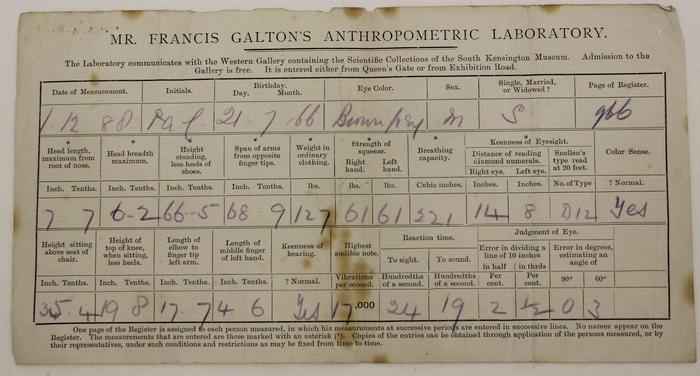 MR. FRANCIS GALTON'S ANTHROPOMETRIC LABORATORY.
The Laboratory communicates with the Western Gallery containing the Scientific Collections of the South Kensington Museum. Admission to the
Gallery is free. It is entered either from Queen's Gate or from Exhibition Road.
Date of Measurement. Initials. Birthday. Day. Month. Eye Color. Sex. Single, Married, or Widowed ? Page of Register.
1 12 88 21 7 66 Brown m S 966
Head length, maximum from root of nose. Head breadth maximum. Height standing, less heels of shoes. Span of arms from opposite finger tips. Weight in ordinary clothing. Strength of squeeze. Right hand. Left hand. Breathing capacity. Keenness of Eyesight. Distance of reading diamond numerals. Right eye. Left eye. Snellen's type read at 20 feet. Color Sense.
Inch. Tenths. Inch. Tenths. Inch. Tenths. Inch. Tenths. lbs. lbs. lbs. Cubic inches. Inches. Inches. No. of Type ? Normal.
7 7 6-2 66-5 68 9 127 61 61 221 14 8 D12 Yes
Height sitting above seat of chair. Height of top of knee, when sitting, less heels. Length of elbow to finger tip left arm. Length of middle finger of left hand. Keenness of hearing. Highest audible note. Reaction time. To sight. To sound. Judgment of Eye. Error in dividing a line of 10 inches in half in thrds Error in degrees, estimating an angle of
Inch. Tenths. Inch. Tenths. Inch. Tenths. Inch. Tenths. ? Normal. Vibrations per second. Hundredths of a second. Hundredths of a second. Per cent. Per cent. 90° 60°
35 4 19 8 17 7 4 6 Yes 17,000 24 19 2 ½ 0 3
One page of the Register is assigned to each person measured, in which his measurements at successive periods are entered in successive lines. No names appear on the
Register. The measurements that are entered are those marked with an asterisk (*). Copies of the entries can be obtained through application of the persons measured, or by
their representatives, under such conditions and restrictions as may be fixed from time to time.